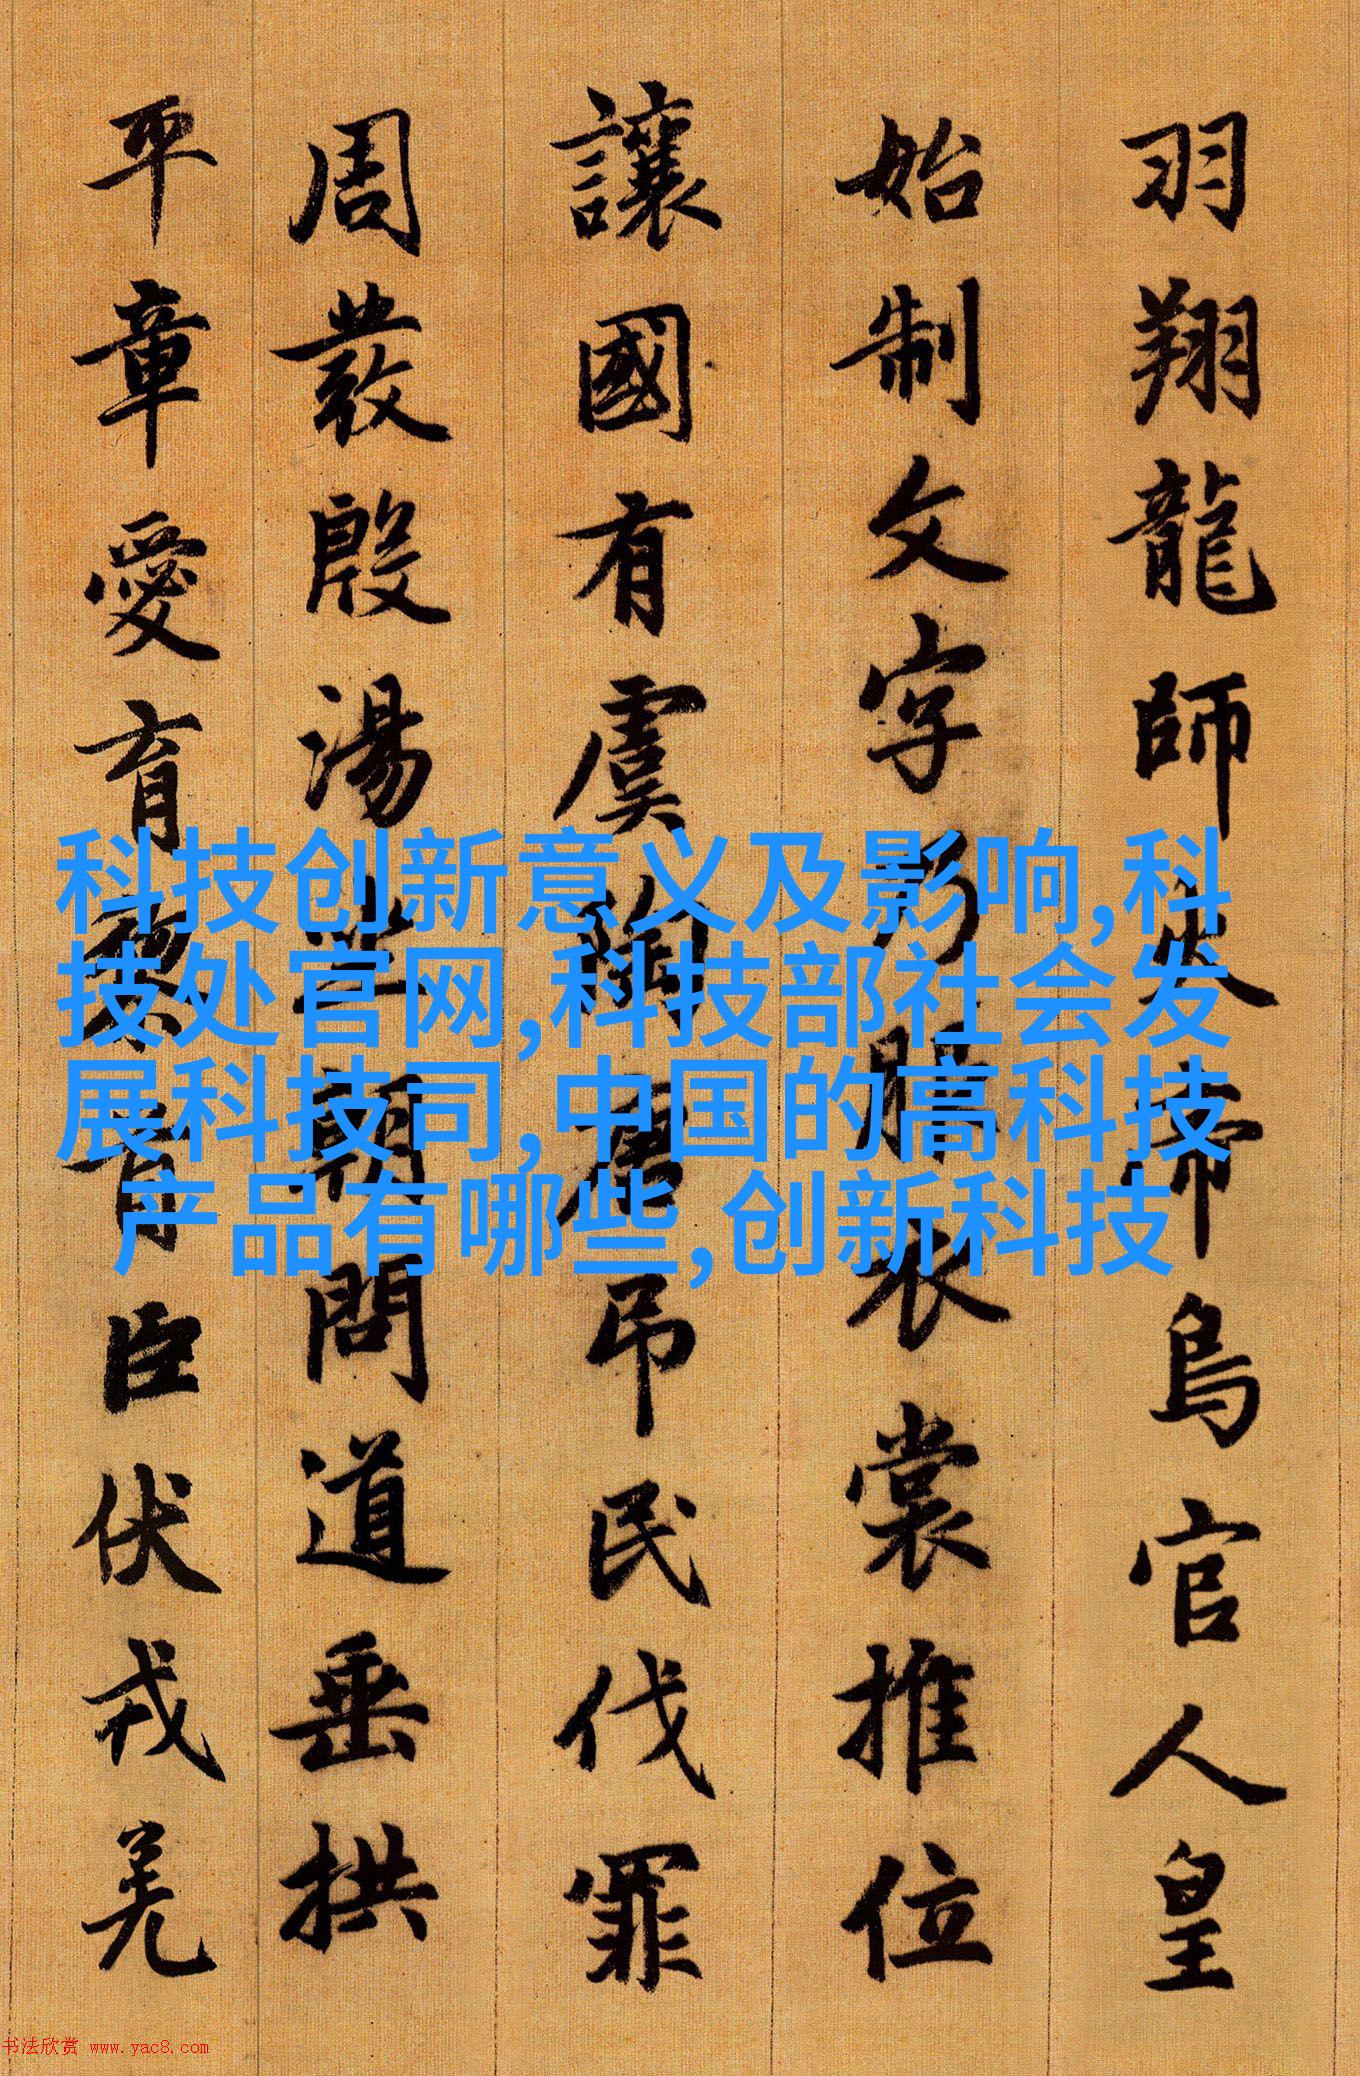 羽翔龍師火帝鳥官人皇
始制文字乃服衣裳推位
讓國有虞陶唐吊民伐罪
周發殷湯坐朝問道垂拱
平章愛育黎首臣伏戎羌
科技创新意义及影响,科
技处官网,科技部社会发
展科技司,中国的高科技
产品有哪些,创新科技
书法欣赏 www.yac8.com